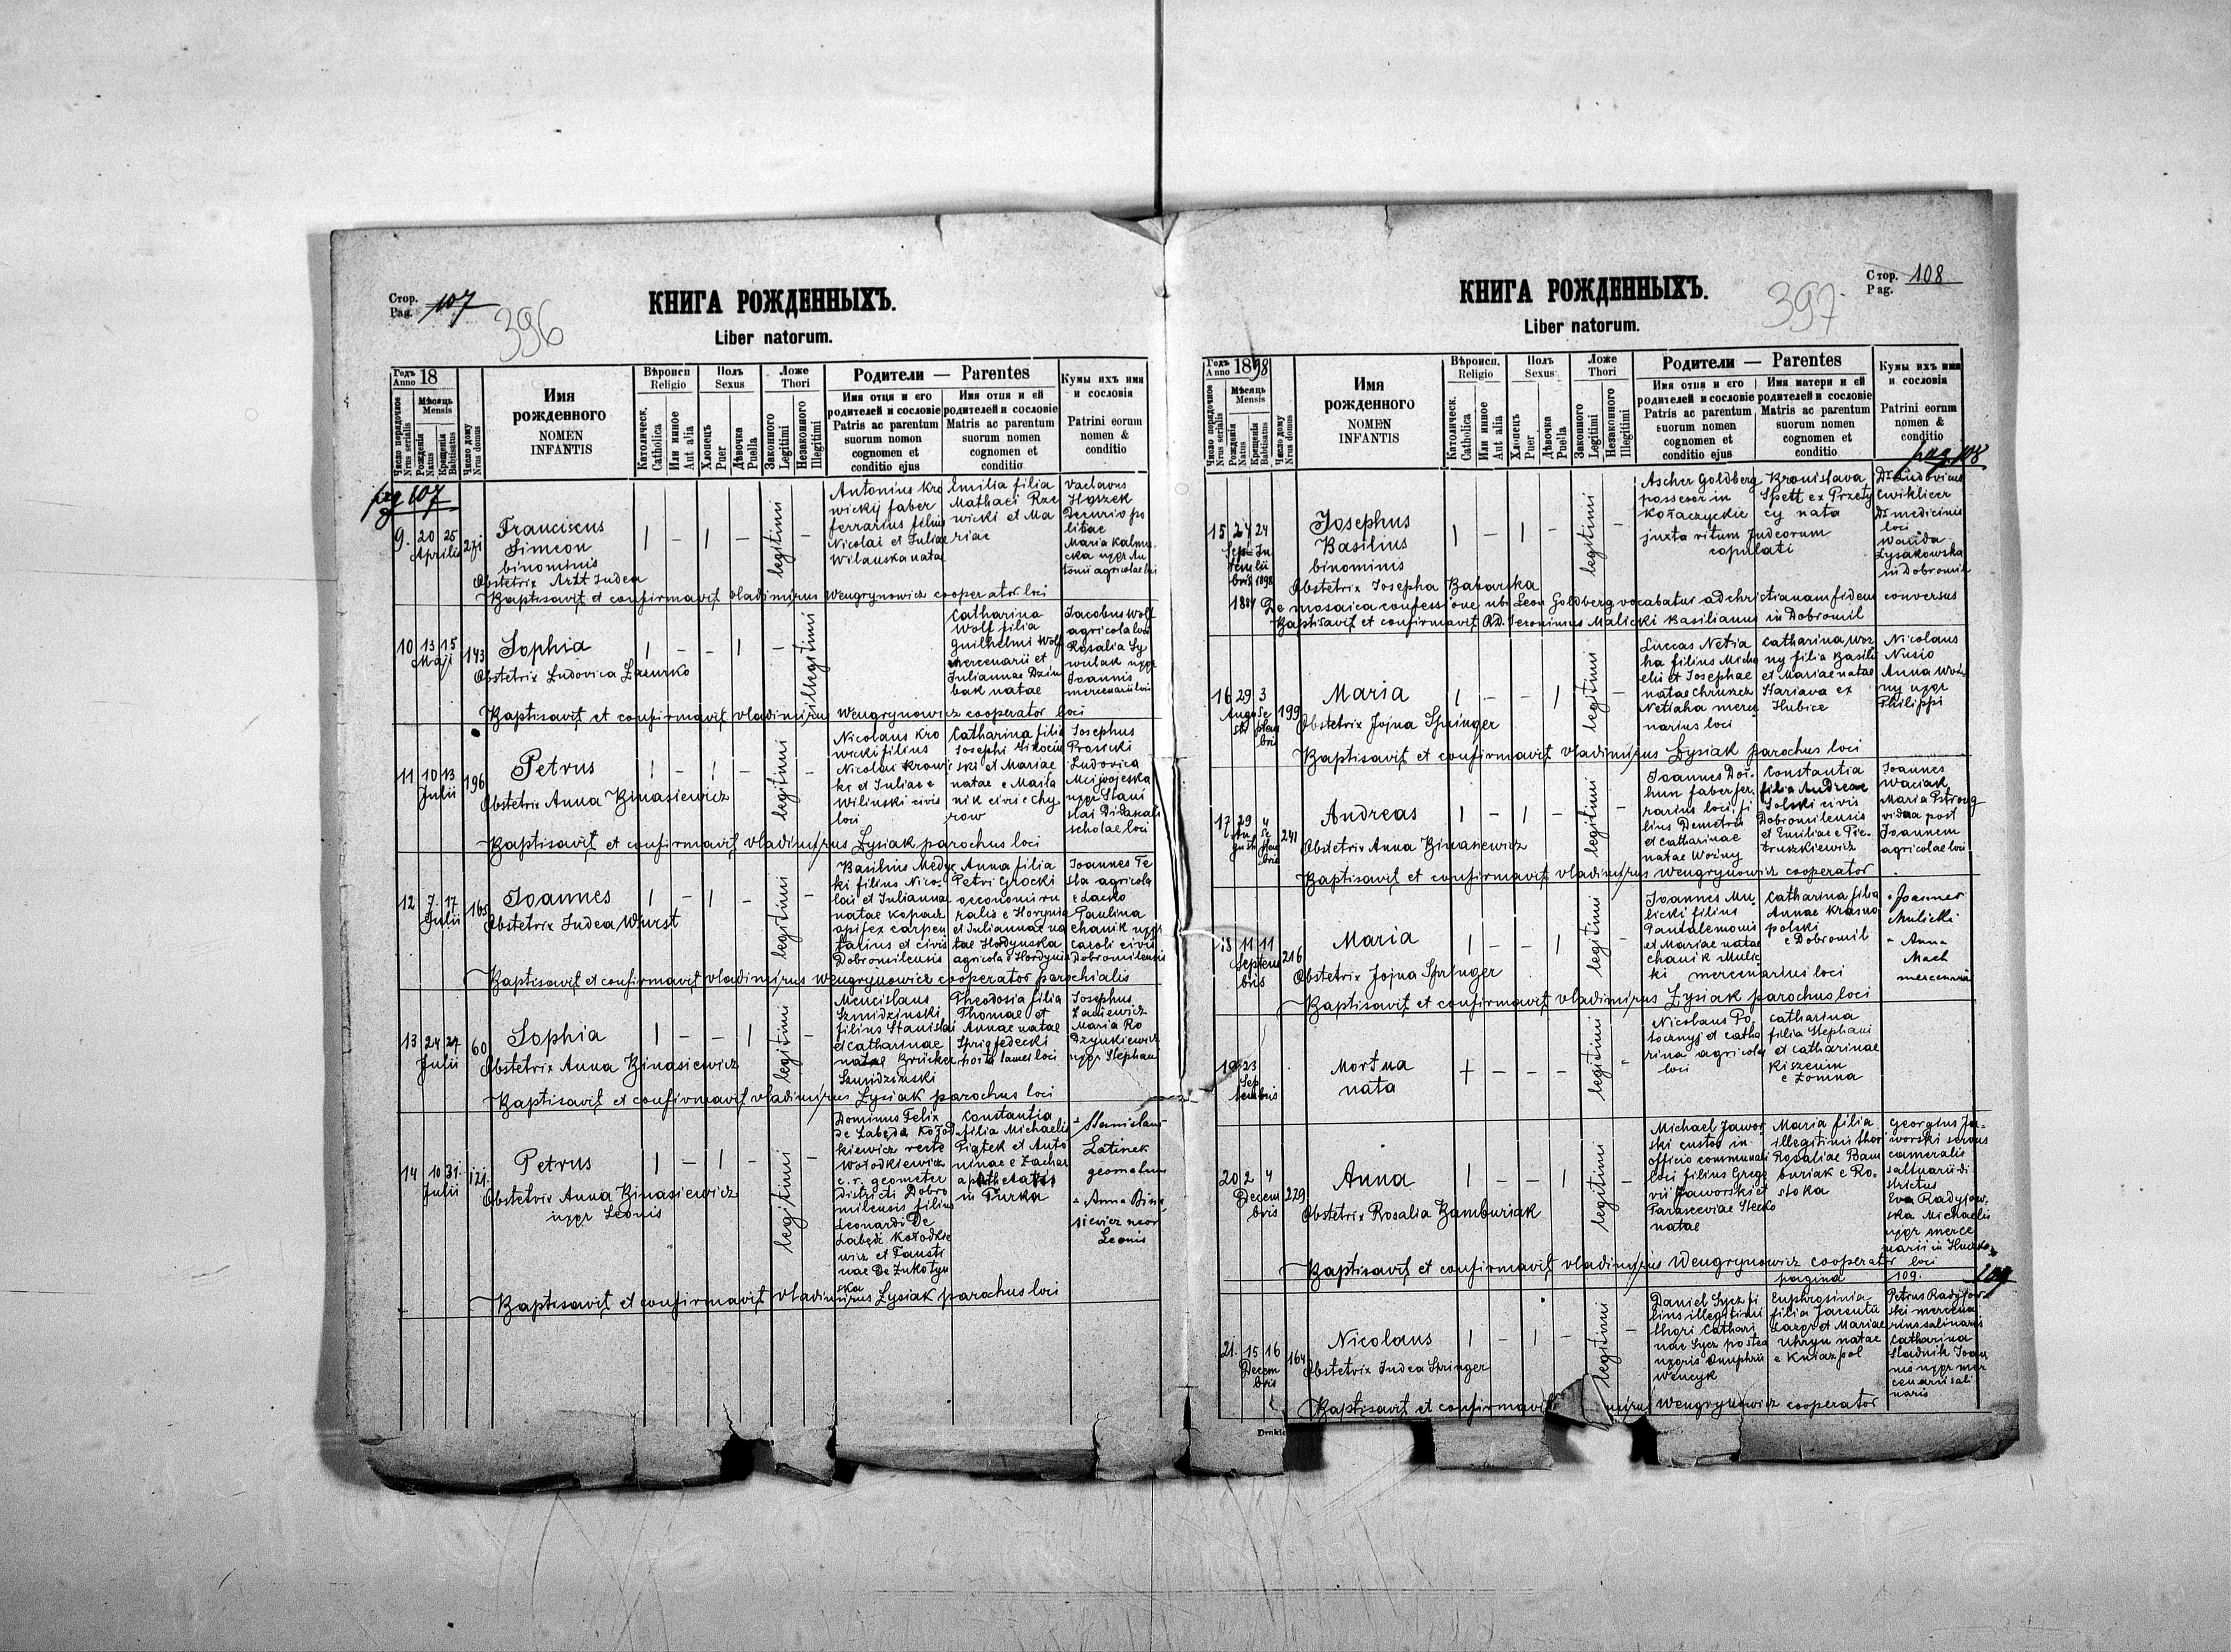 Стор.
Pag. 107
396
КНИГА РОЖДЕННЫХЪ.
Liber natorum.
Годъ
Anno 18
Мѣсяць
Mensis
Число порядочное
Nrus serialis
Рожденія
Natus
Крещенія
Babtisatus
Число дому
Nrus domus
Имя
рожденного
NOMEN
INFANTIS
Вѣроисп
Religio
Католическ.
Catholica
Или инное
Aut alia
Полъ
Sexus
Хлопець
Puer
Дѣвочка
Puella
Ложе
Thori
Законного
Legitimi
Незаконного
Illegitimi
Родители — Parentes
Имя отца и его
родителей и сословіе
Patris ac parentum
suorum nomon
cognomen et
conditio ejus
Имя отця и ей
родителей и сословіе
Matris ac parentum
suorum nomen
cognomen et
conditio
Кумы ихъ имя
и сословія
Patrini eorum
nomen &
conditio
pag 107
9. 20 25
Aprilis
271
Franciscus
Simeon
binominis
Obstetrix Arzt Judea
legitimi
Antonius Kro
wickij faber
ferrarius filius
Nicolai et Juliae
Wilauska natae
Emilia filia
Mathaei Rze
wicki et Ma
riae
Vaclavus
Hoszek
Decurio po
litiae
Maria Kalmu
cka uxor An
tonii agricolae loci
Baptisavit et confirmavit Vladimirus Wengrynowicz cooperator loci
10 13 15
Maji
143
Sophia
Obstetrix Ludovica Lazurko
illegitimi
Catharina
Wolf filia
Guilhelmi Wolf
mercenarii et
Juliannae Dzim
bak natae
Jacobus Wolf
agricola loci
Rosalia Sy
wulak uxor
Joannis
mercenarii loci
Baptisavit et confirmavit Vladimirus Wengrynowicz cooperator loci
11 10 13
Julii
196
Petrus
Obstetrix Anna Binasiewicz
legitimi
Nicolaus Kro
wicki filius
Nicolai Krowi
ki et Juliae e
Wilinski civis
loci
Catharina filia
Josephi
ski et Mariae
natae e Masla
nik civis e Chy
row
Josephus
Prosicki
Ludovica
uxor Stani
slai Didascali
scholae loci
Baptisavit et confirmavit Vladimirus Lysiak parochus loci
12 7. 17
Julii
165
Joannes
Obstetrix Judea Wurst
legitimi
Basilius Medyc
ki filius Nico-
lai et Julianna
natae Kopacz
opifex carpen
tarius et civis
Dobromilensis
Anna filia
Petri Grocki
oeconomi ru
ralis e Horynia
et Juliannae na
tae Hordynska
agricola e Hordynia
Joannes Te
sla agricola
e Lacko
Paulina
Chanik uxor
Caroli civis
Dobromilensis
Baptisavit et confirmavit Vladimirus Wengrynowicz cooperator parochialis
13 24 27
Julii
60
Sophia
Obstetrix Anna Binasiewicz
legitimi
Mencislaus
Szmidzinski
filius Stanislai
et Catharinae
natae Bricker
Szmidzinski
Theodosia filia
Thomae et
Annae natae
Josephus
Zaniewicz
Maria Ro
dzynkiewicz
uxor Stephani
Baptisavit et confirmavit Vladimirus Lysiak parochus loci
14 10 31.
Julii
121.
Petrus
Obstetrix Anna Binasiewicz
uxor Leonis
legitimi
Dominus Felix
de Labędz Kołod
kiewicz recte
Wołodkiewicz
c. r. geometer
districti Dobro
milensis filius
Leonardi De
Labędz Kołodkie
wicz et Fausti
nae De Zukotyn
ska
Constantia
filia Michaelis
Piątek et Anto
ninae e Zachar
in Turka
Stanislaus
Latinek
geometra
Anna Bina
siewicz uxor
Leonis
Baptisavit et confirmavit Vladimirus Lysiak parochus loci
Стор. 108
Pag.
397
КНИГА РОЖДЕННЫХЪ.
Liber natorum.
Годъ
Anno 1898
Мѣсяць
Mensis
Число порядочное
Nrus serialis
Рожденія
Natus
Крещенія
Babtisatus
Число дому
Nrus domus
Имя
рожденного
NOMEN
INFANTIS
Вѣроисп.
Religio
Католическ.
Catholica
Или инное
Aut alia
Полъ
Sexus
Хлопець
Puer
Дѣвочка
Puella
Ложе
Thori
Законного
Legitimi
Незаконного
Illegitimi
Родители — Parentes
Имя отця и его
родителей и сословіе
Patris ac parentum
suorum nomen
cognomen et
conditio ejus
Имя матери и ей
родителей и сословіе
Matris ac parentum
suorum nomen
cognomen et
conditio
Кумы ихъ имя
и сословія
Patrini eorum
nomen &
conditio
pag 108
15 24 24
Sep- Ju
tem lii
bris 1898
1884
Josephus
Basilius
binominis
Obstetrix Josepha Babarska
legitimi
Ascher Goldberg
possesor in
Kołaczyckie
juxta ritum Judeorum
copulati
Bronislava
Spett ex Przety
cy nata
Dr Ludovicus
Cwiklicer
Dr medicinis
loci
Wanda
Lysakowska
in Dobromil
De mosaica confessione ubi Leon Goldberg vocabatur ad christianam fidem conversus
Baptisavit et confirmavit Rd. Jeronimus Malicki Basilianus in Dobromil
16 29 3
Augu Se
sti ptem
bris
199
Maria
Obstetrix Jojna Springer
legitimi
Luccas Netia
ha filius Micha
elis et Josephae
natae Chruncz
Netiaha merce
narius loci
Catharina Woz
ny filia Basilii
et Mariae natae
Hariava ex
Hubice
Nicolaus
Nusio
Anna Woz
ny uxor
Philippi
Baptisavit et confirmavit Vladimirus Lysiak parochus loci
17 29 4
Au Se
gusti ptem
bris
241
Andreas
Obstetrix Anna Binasiewicz
legitimi
Joannes Doł-
hun faber fer-
rarius loci fi
lius Demetrii
et Catharinae
natae Wozny
Constantia
filia Andreae
Solski civis
Dobromilensis
et Emiliae e Pie-
truszkiewicz
Joannes
Waciak
Maria Pstrong
vidua post
Joannem
agricolae loci
Baptisavit et confirmavit Vladimirus Wengrynowicz cooperator
18 11 11
Septem
bris
216
Maria
Obstetrix Jojna Springer
legitimi
Joannes Mu
licki filius
Pantalemonis
et Mariae natae
Chanik Mulic
ki mercenarius loci
Catharina filia
Annae Krasno
polski
e Dobromil
Joannes
Mulicki
Anna
Mach
mercenaria
Baptisavit et confirmavit Vladimirus Lysiak parochus loci
19 23
Sep
tembris
Mortua
nata
legitimi
Nicolaus Po
tocznyj et Catha
rina agricolae
loci
Catharina
filia Stephani
et Catharinae
Kiszeum
e Łomna
20 2 4
Decem
bris
229
Anna
Obstetrix Rosalia Bamburiak
legitimi
Michael Jawor
ski custos in
officio communali
loci filius Grego
rii Jaworski et
Parasceviae Stecko
natae
Maria filia
illegitimi thori
Rosaliae Bam
buriak e Ro-
stoka
Georgius Ja-
worski servus
cameralis
saltuarii di
strictus
Eva Radyjow-
ska Michaelis
uxor merce
narii in Huczko
loci
Baptisavit et confirmavit Vladimirus Wengrynowicz cooperator
pagina 109.
109
21. 15 16
Decem
bris
164
Nicolaus
Obstetrix Judea Springer
legitimi
Daniel Sycz fi
lius illegitimi
thori Cathari
nae Sycz postea
uxoris Onuphrii
Wencyk
Euphrosinia
filia Jarentii
Lazor et Mariae
Uhryn natae
e Kniazpol
Petrus Radyjow
ski mercena
rius salinaris
Catharina
Sladnik Joan
nis uxor mer
cenarii sali
naris
Baptisavit et confirmavit Wengrynowicz cooperator